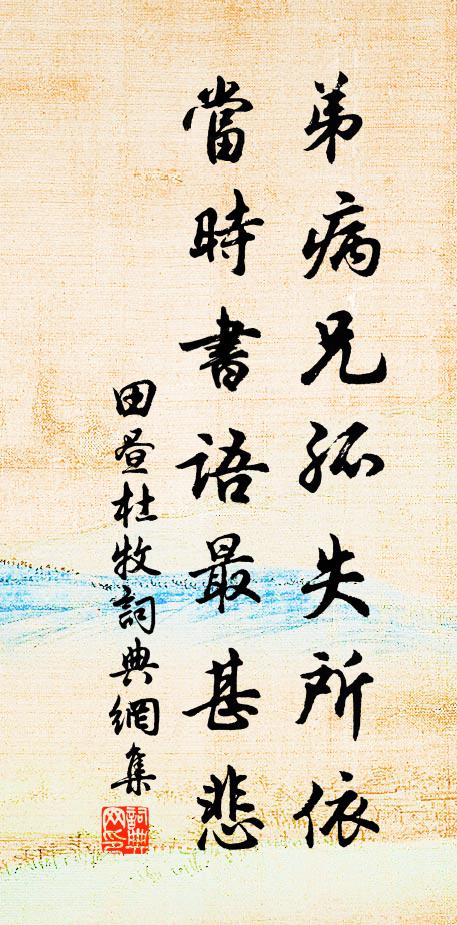 弟病兄孤失所依
當時書語最甚悲
田晝杜牧詞典網集
詞典網印